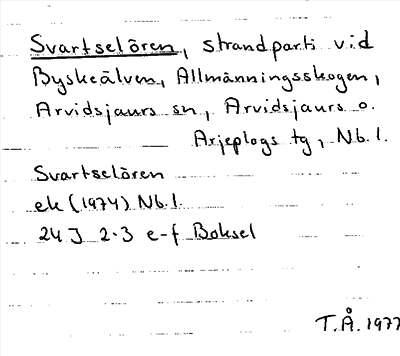 Svartselören, strandparti vid
Byskeälven, Allmänningsskogen,
Arvidsjaurs sn, Arvidsjaurs o.
Arjeplogs tg, Nb. l.
Svartselören
ek (1974) Nb. l.
24 J 2-3 e-f Boksel
T.Å. 1977